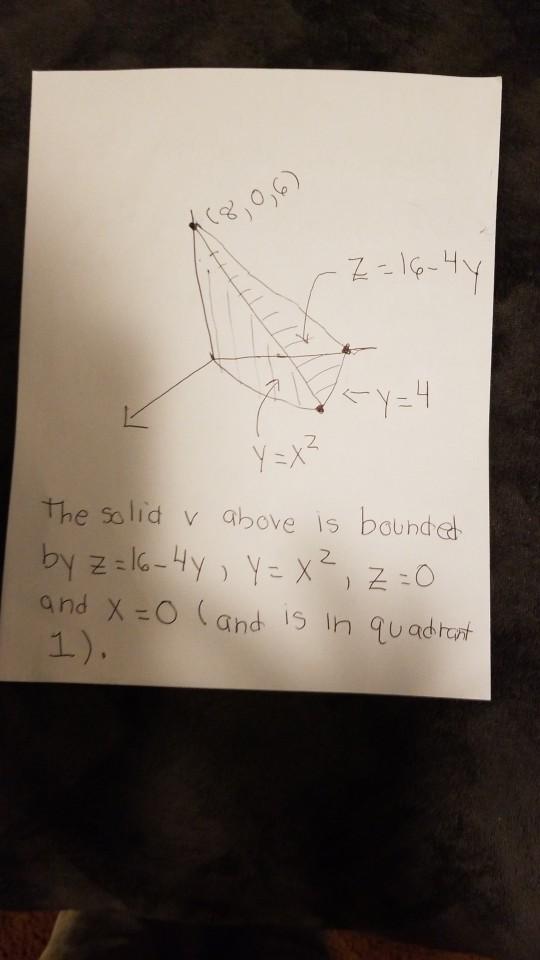 (8,0,6)
Z=16-4y
y=4
y=x²
The solid v above is bounded
by z=16-4y, y=x², z=0
and x=0 (and is in quadrant
1).